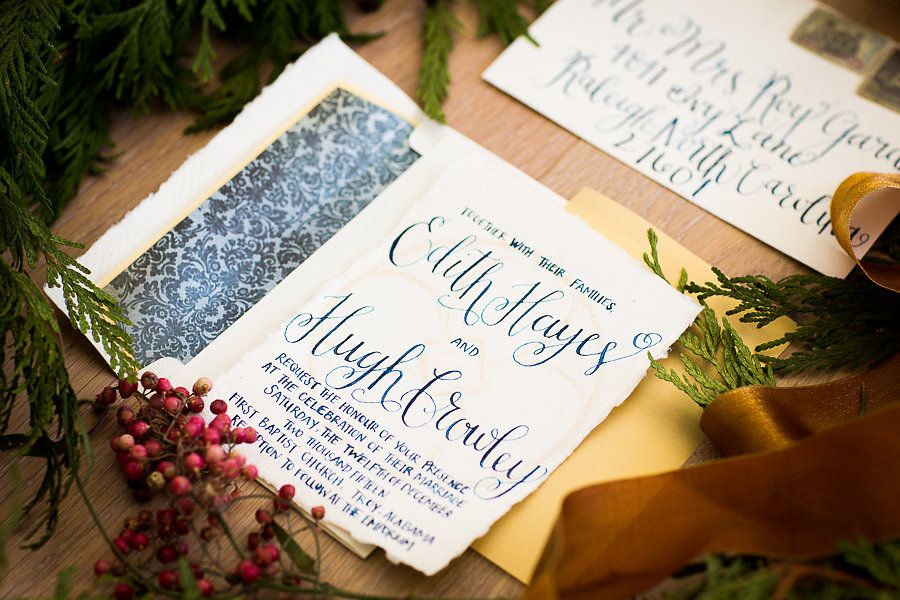 TOGETHER WITH THEIR FAMILIES,
Edith Hayes
AND
Hugh Crowley
REQUEST THE HONOUR OF YOUR PRESENCE
AT THE CELEBRATION OF THEIR MARRIAGE
SATURDAY, THE TWELFTH OF DECEMBER
TWO THOUSAND FIFTEEN
FIRST BAPTIST CHURCH, TROY, ALABAMA
RECEPTION TO FOLLOW AT THE EMPORIUM
Mr Mrs Roy
1011 Ivy Lane
Raleigh North Carolina
27601